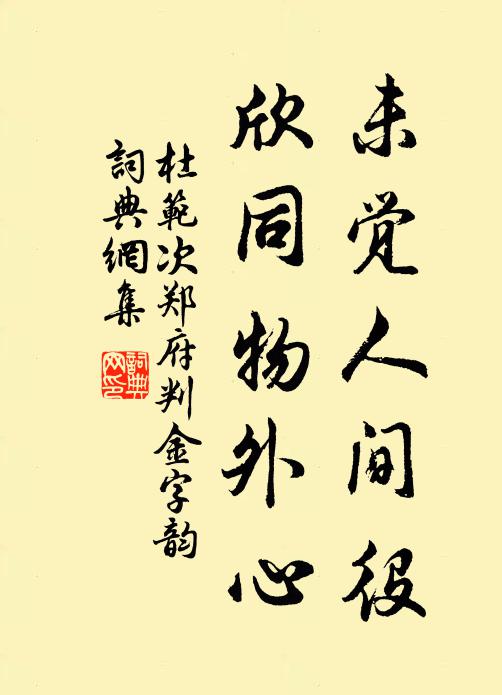 未觉人间役
欣同物外心
杜範次郑府判金字韵
詞典網集
詞典网印